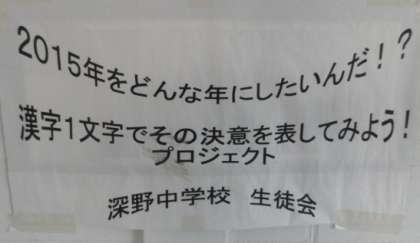 2015年をどんな年にしたいんだ！？
漢字1文字でその決意を表してみよう！
プロジェクト
深野中学校 生徒会